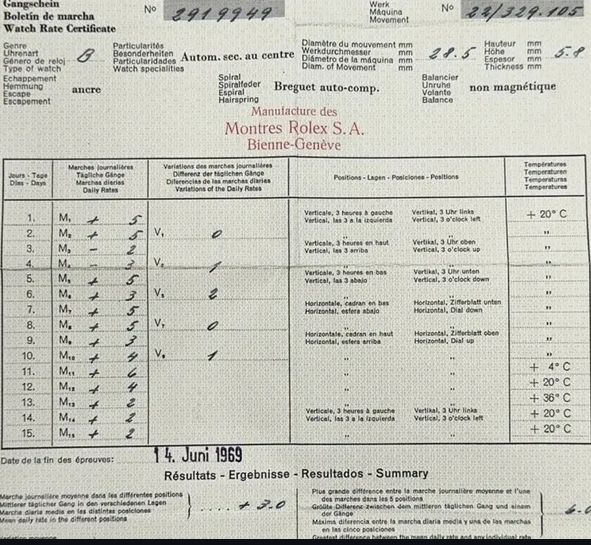 Gangschein
Boletin de marcha
Watch Rate Certificate
No 2919949
Werk
Máquina
Movement
No 22/329.105
Genre
Uhrenart
Género de reloj
Type of watch
B
Particularités
Besonderheiten
Particularidades
Watch specialities
Autom. sec. au centre
Diamètre du mouvement mm
Werkdurchmesser mm
Diámetro de la máquina mm
Diam. of Movement mm
28.5
Hauteur mm
Höhe mm
Espesor mm
Thickness mm
5.8
Echappement
Hemmung
Escape
Escapement
ancre
Spiral
Spiralfeder
Espiral
Hairspring
Breguet auto-comp.
Balancier
Unruhe
Volante
Balance
non magnétique
Manufacture des
Montres Rolex S.A.
Bienne-Genève
Jours - Tage
Dias - Days
Marches journalières
Tägliche Gänge
Marchas diarias
Daily Rates
Variations des marches journalières
Differenz der täglichen Gänge
Diferencias de las marchas diarias
Variations of the Daily Rates
Positions - Lagen - Posiciones - Positions
Températures
Temperaturen
Temperaturas
Temperatures
1. M₁ + 5 Verticale, 3 heures à gauche Vertikal, 3 Uhr links + 20° C
Vertical, las 3 a la izquierda Vertical, 3 o'clock left
2. M₂ + 5 V₁ 0 " " "
3. M₃ - 2 Verticale, 3 heures en haut Vertikal, 3 Uhr oben "
Vertical, las 3 arriba Vertical, 3 o'clock up
4. M₄ - 3 V₂ 1 " " "
5. M₅ + 5 Verticale, 3 heures en bas Vertikal, 3 Uhr unten "
Vertical, las 3 abajo Vertical, 3 o'clock down
6. M₆ + 3 V₃ 2 " " "
7. M₇ + 5 Horizontale, cadran en bas Horizontal, Zifferblatt unten "
Horizontal, esfera abajo Horizontal, Dial down
8. M₈ + 5 V₇ 0 " " "
9. M₉ + 3 Horizontale, cadran en haut Horizontal, Zifferblatt oben "
Horizontal, esfera arriba Horizontal, Dial up
10. M₁₀ + 4 V₉ 1 " " "
11. M₁₁ + 6 " " + 4° C
12. M₁₂ + 4 " " + 20° C
13. M₁₃ + 2 " " + 36° C
14. M₁₄ + 2 Verticale, 3 heures à gauche Vertikal, 3 Uhr links + 20° C
Vertical, las 3 a la izquierda Vertical, 3 o'clock left
15. M₁₅ + 2 " " + 20° C
Date de la fin des épreuves: 14. Juni 1969
Résultats - Ergebnisse - Resultados - Summary
Marche journalière moyenne dans les différentes positions
Mittlerer täglicher Gang in den verschiedenen Lagen
Marcha diaria media en las distintas posiciones
Mean daily rate in the different positions
+ 3.0
Plus grande différence entre la marche journalière moyenne et l'une
des marches dans les 5 positions
Größte Differenz zwischen dem mittleren täglichen Gang und einem
der Gänge
Máxima diferencia entre la marcha diaria media y una de las marchas
en las cinco posiciones
Greatest difference between the mean daily rate and any individual rate